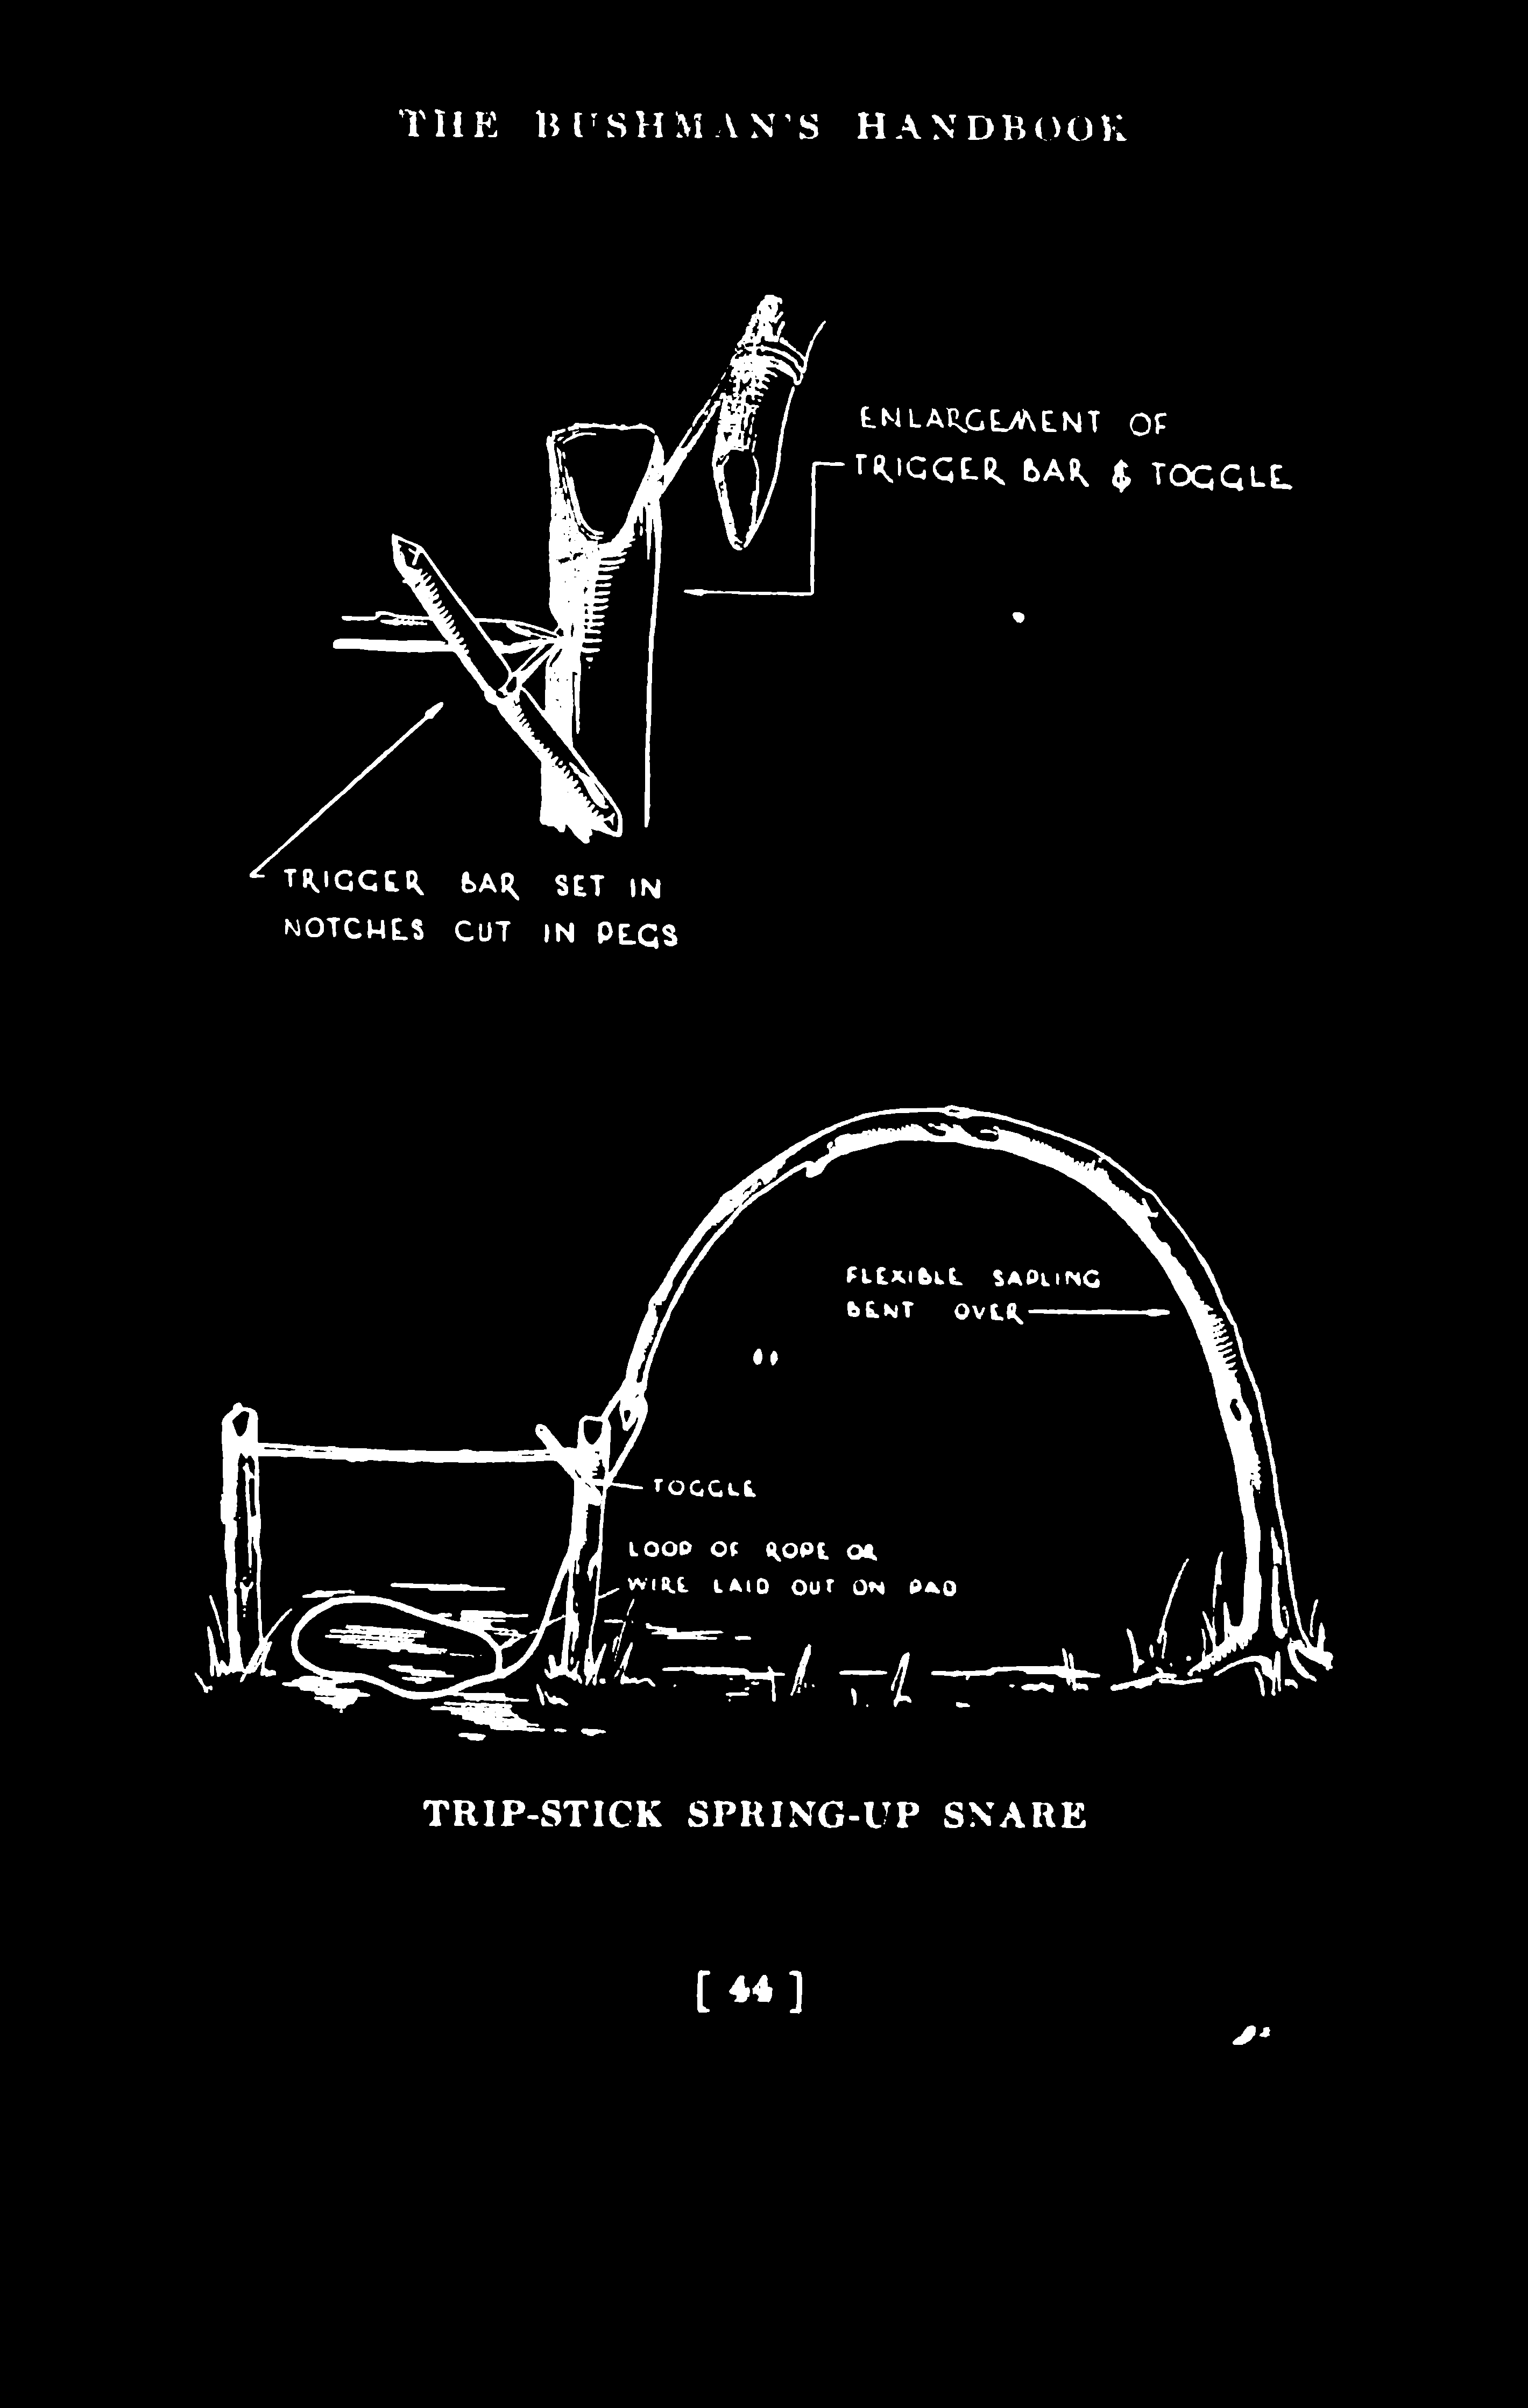 THE BUSHMAN'S HANDBOOK
ENLARGEMENT OF
TRIGGER BAR & TOGGLE
TRIGGER BAR SET IN
NOTCHES CUT IN PEGS
FLEXIBLE SAPLING
BENT OVER
TOGGLE
LOOP OF ROPE OR
WIRE LAID OUT ON PAD
TRIP-STICK SPRING-UP SNARE
[ 44 ]